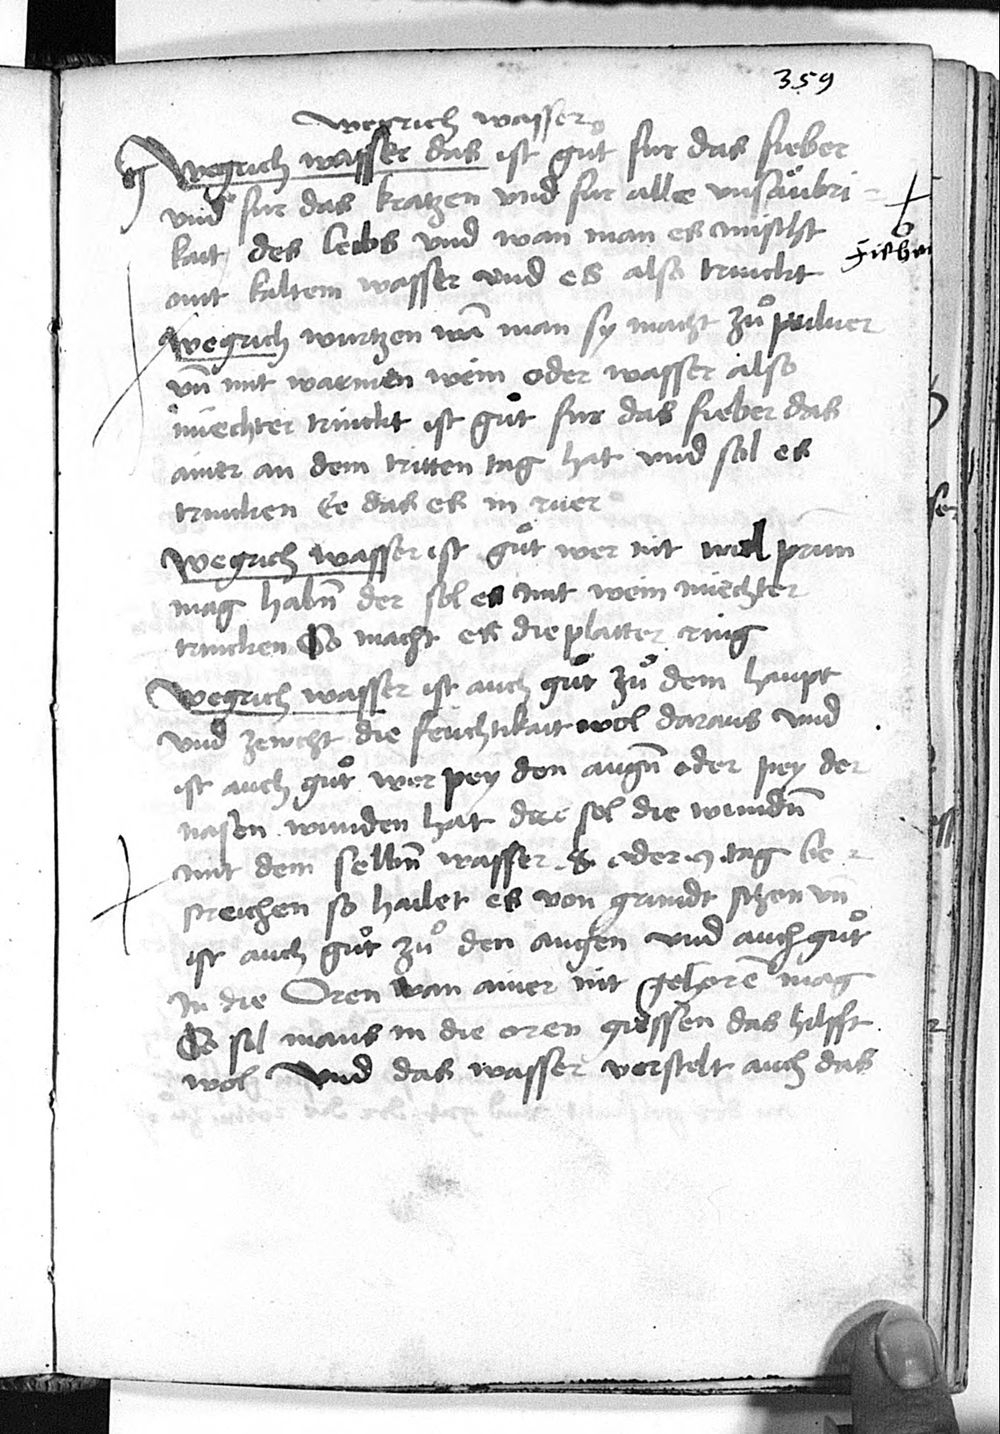 359
Wegrich wasser
Wegrich wasser das ist gůt fur das fieber
vnd fur das kratzen vnd fur alle vnsaubri-
kait des leibs vnd wan man es mischt
mit kaltem wasser vnd es also trinckt
Wegrich wurtzen wā man sy macht zů puluer
vn̄ mit warmen wein oder wasser also
nuechter trinckt ist gůt fur das fieber das
ainer an dem tritten tag hat vnd sol es
trincken Ee das es in rüer
Wegrich wasser ist gůt wer nit wol prun
mag habn̄ der sol es mit wein nuechter
trincken So macht es die platter ring
Wegrich wasser ist auch gůt zů dem haupt
vnd zewcht die feuchtikait wol daraus vnd
ist auch gůt wer pey den augn̄ oder pey der
nasen wunden hat der sol die wundn̄
mit dem selbn̄ wasser 8 oder 9 tag be-
streichen so hailet es von grundt schon vn̄
ist auch gůt zů den augen vnd auch gůt
In die Oren wan ainer nit gehorē mag
So sol mans in die oren giessen das hilfft
wol Vnd das wasser verstelt auch das